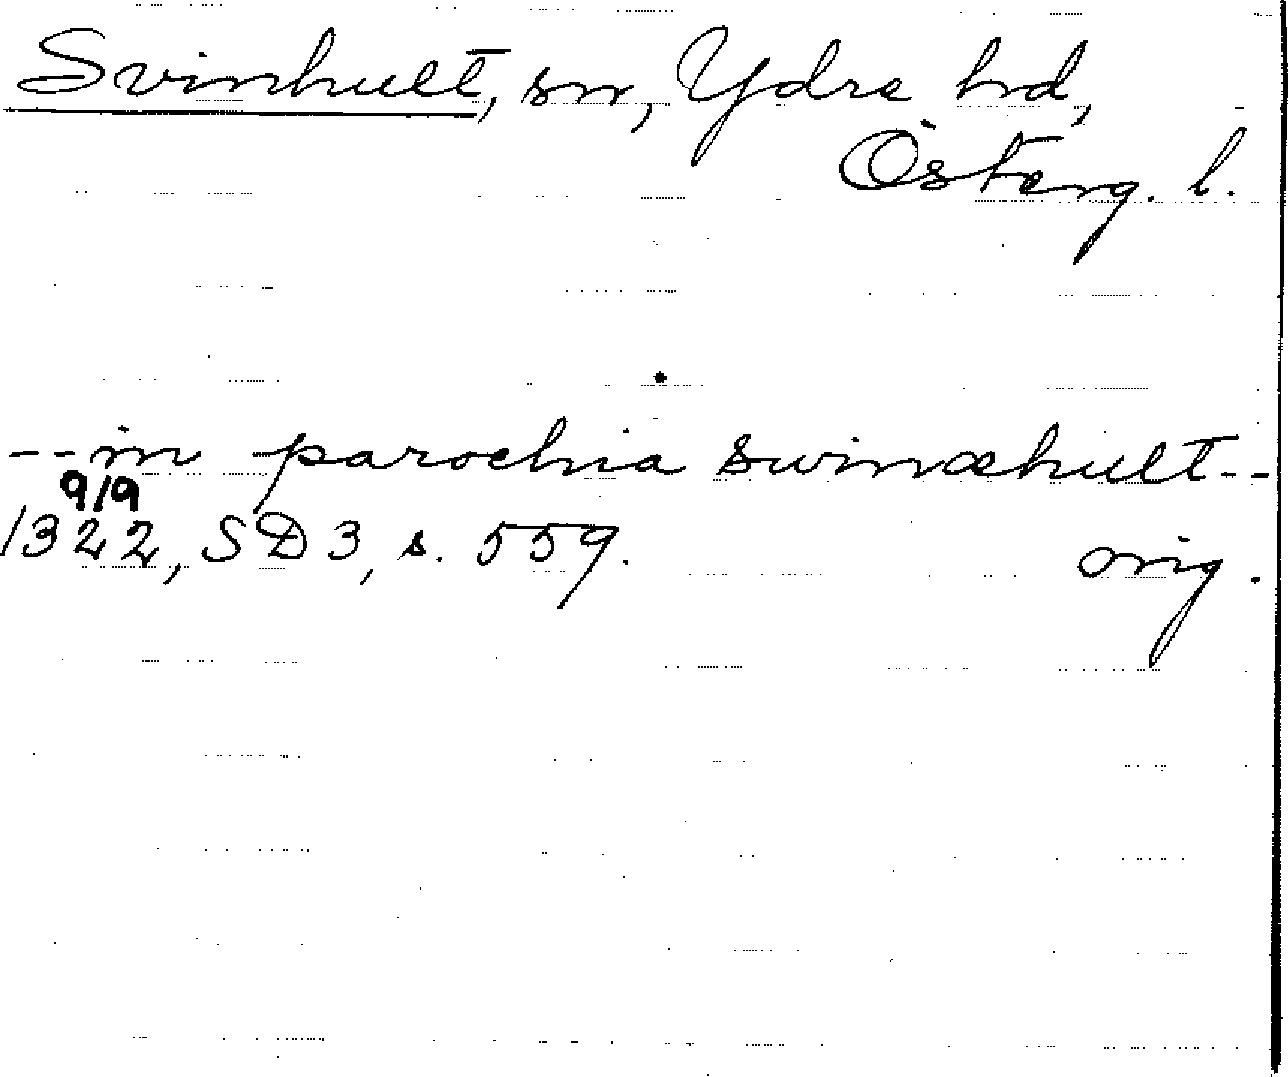 Svinhult, sn, Ydre hd,
Österg. l.
--in parochia swinæhult--
9/9
1322, SD 3, s. 559.
orig.